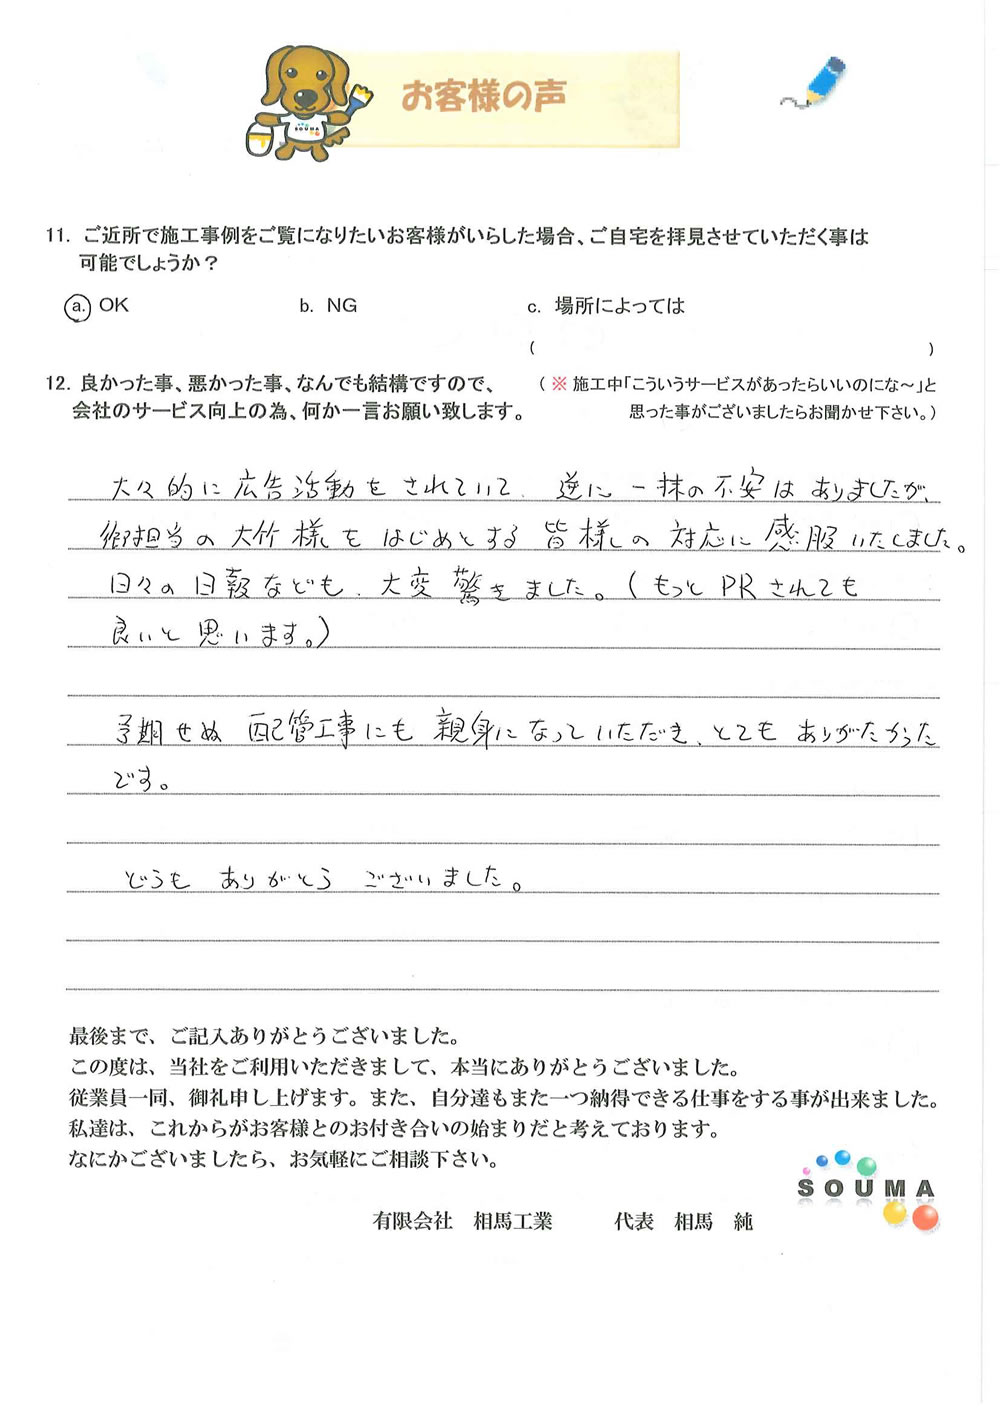 お客様の声
SOUMA
11. ご近所で施工事例をご覧になりたいお客様がいらした場合、ご自宅を拝見させていただく事は
可能でしょうか？
a. OK b. NG c. 場所によっては
( )
12. 良かった事、悪かった事、なんでも結構ですので、 (※ 施工中「こういうサービスがあったらいいのにな～」と
会社のサービス向上の為、何か一言お願い致します。 思った事がございましたらお聞かせ下さい。)
大々的に広告活動をされていて、逆に一抹の不安はありましたが、
御担当の大竹様をはじめとする皆様の対応に感服いたしました。
日々の日報なども、大変驚きました。(もっとPRされても
良いと思います。)
予期せぬ配管工事にも親身になっていただき、とてもありがたかった
です。
どうもありがとうございました。
最後まで、ご記入ありがとうございました。
この度は、当社をご利用いただきまして、本当にありがとうございました。
従業員一同、御礼申し上げます。また、自分達もまた一つ納得できる仕事をする事が出来ました。
私達は、これからがお客様とのお付き合いの始まりだと考えております。
なにかございましたら、お気軽にご相談下さい。
SOUMA
有限会社 相馬工業 代表 相馬 純